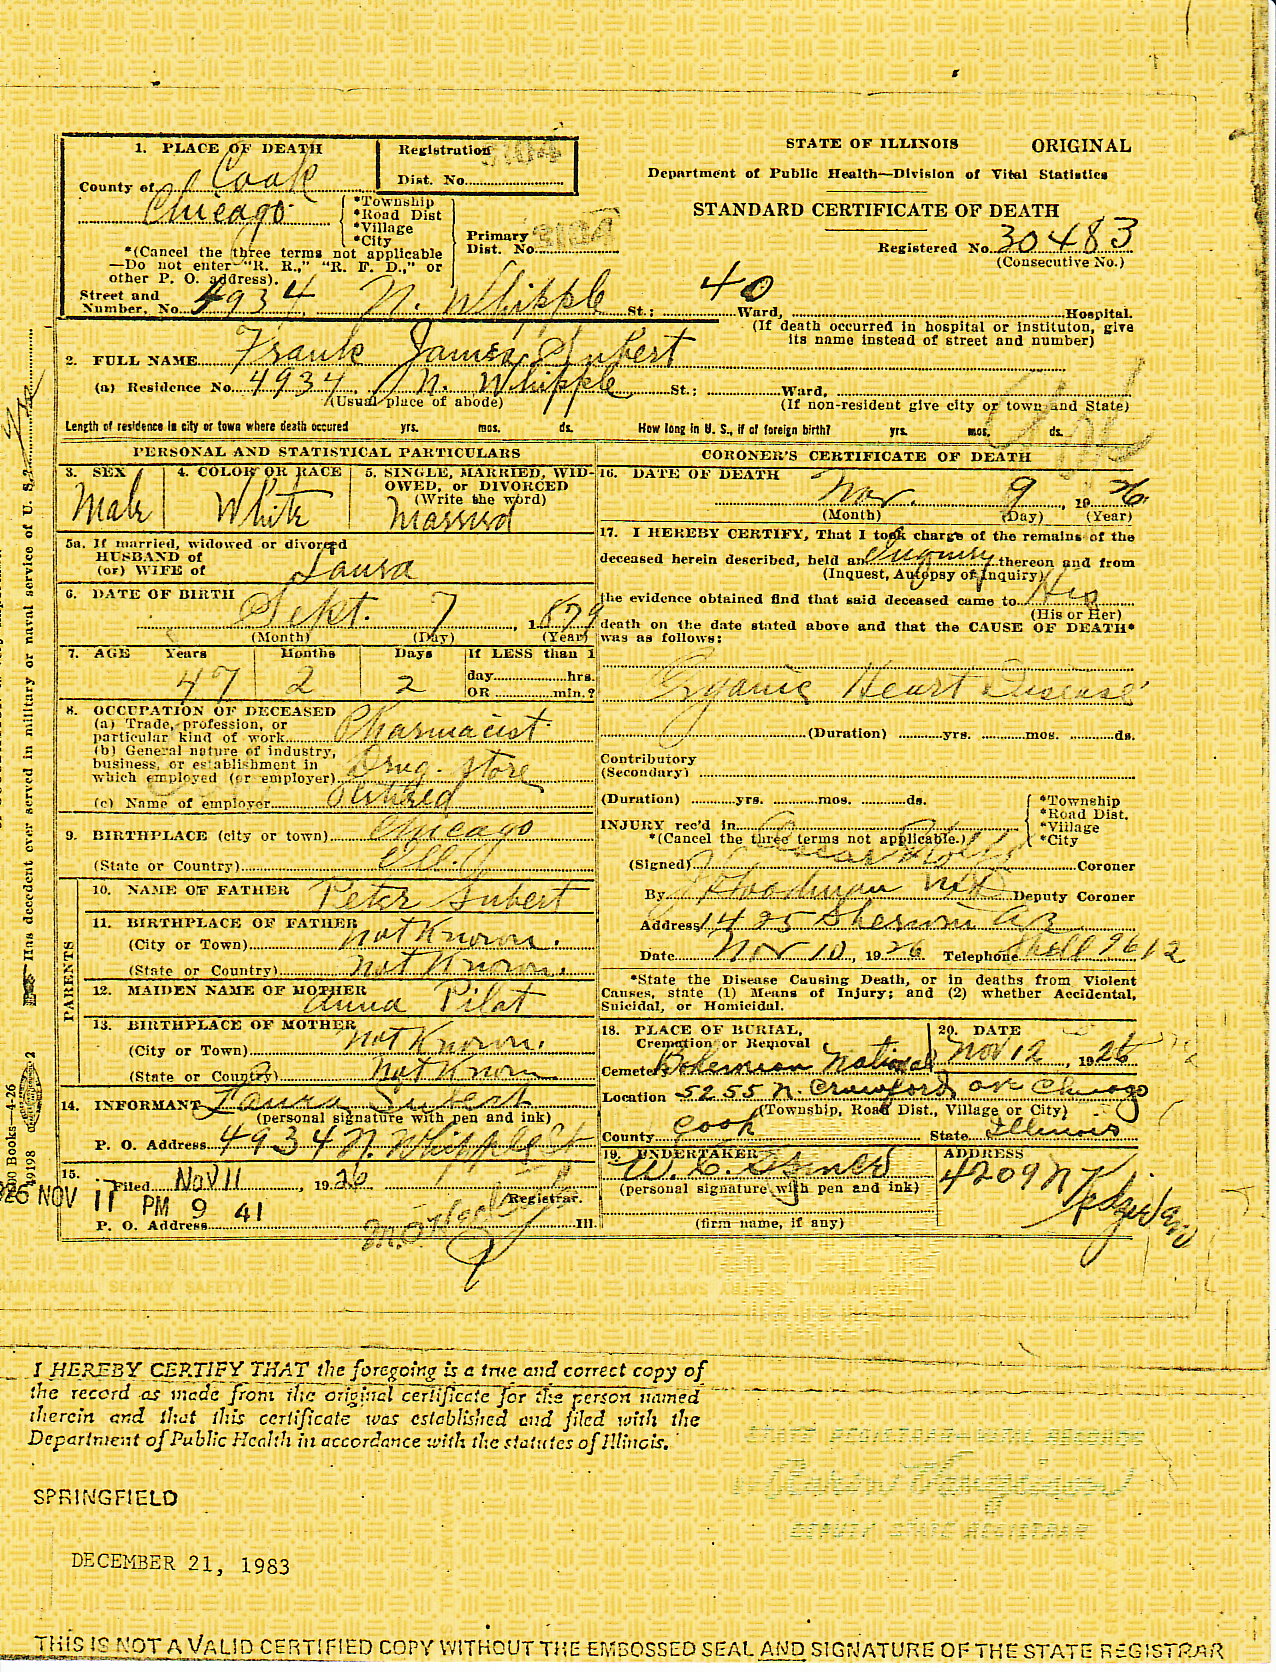 STATE OF ILLINOIS ORIGINAL
Department of Public Health—Division of Vital Statistics
STANDARD CERTIFICATE OF DEATH
Registered No. 30483
(Consecutive No.)
1. PLACE OF DEATH
County of Cook
Chicago
*Township
*Road Dist
*Village
*City
*(Cancel the three terms not applicable
—Do not enter "R. R.," "R. F. D.," or
other P. O. address).
Registration 3104
Dist. No.
Primary 3104
Dist. No.
Street and
Number, No. 4934 N. Whipple St.; 40 Ward, Hospital.
(If death occurred in hospital or instituton, give
its name instead of street and number)
2. FULL NAME Frank James Subert
(a) Residence No. 4934 N. Whipple St.; Ward,
(Usual place of abode) (If non-resident give city or town and State)
Length of residence in city or town where death occured yrs. mos. ds. How long in U. S., if of foreign birth? yrs. mos. ds.
PERSONAL AND STATISTICAL PARTICULARS
3. SEX 4. COLOR OR RACE 5. SINGLE, MARRIED, WID-
OWED, or DIVORCED
(Write the word)
Male White Married
5a. If married, widowed or divorced
HUSBAND of
(or) WIFE of Laura
6. DATE OF BIRTH
Sept. 7, 1879
(Month) (Day) (Year)
7. AGE Years Months Days If LESS than 1
day hrs.
OR min.?
47 2 2
8. OCCUPATION OF DECEASED
(a) Trade, profession, or
particular kind of work Pharmacist
(b) General nature of industry,
business, or establishment in
which employed (or employer) Drug. store
(c) Name of employer Retired
9. BIRTHPLACE (city or town) Chicago
(State or Country) Ill.
PARENTS
10. NAME OF FATHER Peter Subert
11. BIRTHPLACE OF FATHER
(City or Town) not Known.
(State or Country) not Known.
12. MAIDEN NAME OF MOTHER
Anna Pilat
13. BIRTHPLACE OF MOTHER
(City or Town) not Known.
(State or Country) not Known
14. INFORMANT Laura Subert
(personal signature with pen and ink)
P. O. Address 4934 N. Whipple St
15.
Filed Nov 11, 1926
Registrar.
'26 NOV 11 PM 9 41
P. O. Address Ill.
CORONER'S CERTIFICATE OF DEATH
16. DATE OF DEATH
Nov. 9, 1926
(Month) (Day) (Year)
17. I HEREBY CERTIFY, That I took charge of the remains of the
deceased herein described, held an Inquiry thereon and from
(Inquest, Autopsy of Inquiry)
the evidence obtained find that said deceased came to His
(His or Her)
death on the date stated above and that the CAUSE OF DEATH*
was as follows:
Organic Heart Disease
(Duration) yrs. mos. ds.
Contributory
(Secondary)
(Duration) yrs. mos. ds.
INJURY rec'd in
*Township
*Road Dist.
*Village
*City
*(Cancel the three terms not applicable.)
(Signed) Oscar Wolff Coroner
By Goodman MD Deputy Coroner
Address 1425 Sherwin
Date Nov 10, 1926 Telephone 9612
*State the Disease Causing Death, or in deaths from Violent
Causes, state (1) Means of Injury; and (2) whether Accidental,
Suicidal, or Homicidal.
18. PLACE OF BURIAL,
Cremation or Removal
20. DATE
Cemetery Bohemian National Nov 12, 1926
Location 5255 N. Crawford ave Chicago
(Township, Road Dist., Village or City)
County Cook State Illinois
19. UNDERTAKER ADDRESS
W. C.
4209 N Kedzie Ave
(personal signature with pen and ink)
(firm name, if any)
Has decedent ever served in military or naval service of U. S.?
Books-4-26
49198 2
I HEREBY CERTIFY THAT the foregoing is a true and correct copy of
the record as made from the original certificate for the person named
therein and that this certificate was established and filed with the
Department of Public Health in accordance with the statutes of Illinois.
SPRINGFIELD
DECEMBER 21, 1983
DEPUTY STATE REGISTRAR
THIS IS NOT A VALID CERTIFIED COPY WITHOUT THE EMBOSSED SEAL AND SIGNATURE OF THE STATE REGISTRAR